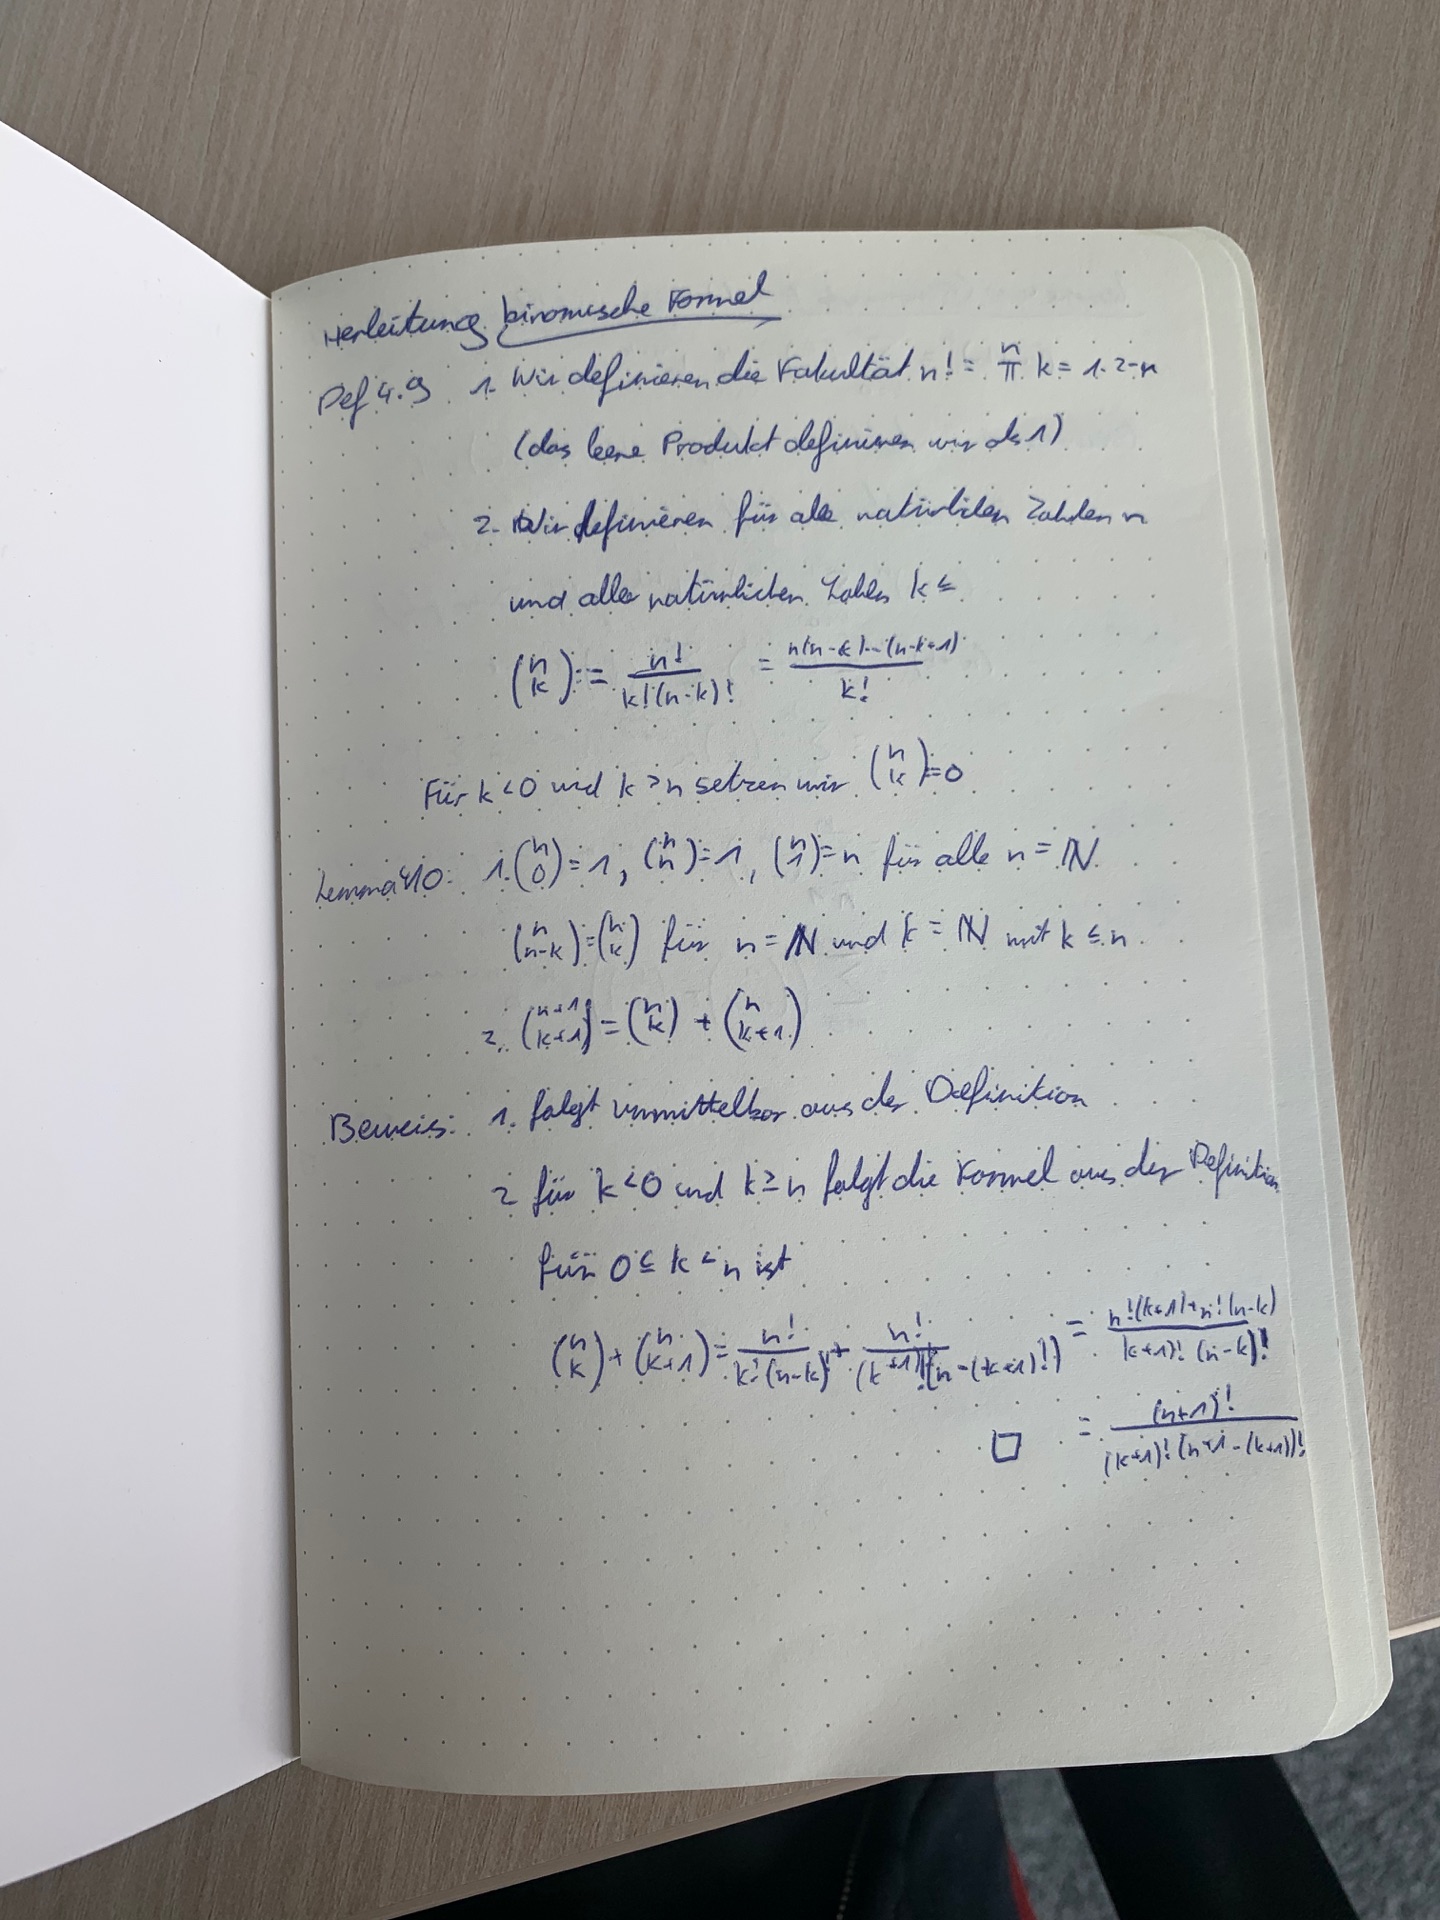 Herleitung binomische Formel
Def 4.9 1. Wir definieren die Fakultät n! = n π k = 1·2-n
(das leere Produkt definieren wir als 1)
2. Wir definieren für alle natürlichen Zahlen n
und alle natürlichen Zahlen k ≤
(n k) := n! / k!(n-k)! = n(n- )...(n-k+1) / k!
Für k < 0 und k > n setzen wir (n k) = 0
Lemma 4.10: 1. (n 0) = 1, (n n) = 1, (n 1) = n für alle n = ℕ
(n n-k) = (n k) für n = ℕ und k = ℕ mit k ≤ n
2. (n+1 k+1) = (n k) + (n k+1)
Beweis: 1. folgt unmittelbar aus der Definition
2 für k < 0 und k ≥ n folgt die Formel aus der Definition
für 0 ≤ k < n ist
(n k) + (n k+1) = n! / k!(n-k)! + n! / (k+1)!(n-(k+1)!) = n!(k+1)+n!(n-k) / k+1)! (n-k)!
□ = (n+1)! / (k+1)!(n+1-(k+1))!